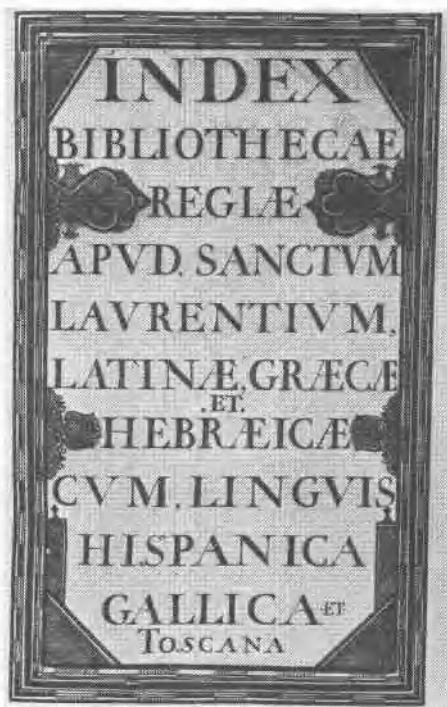 INDEX
BIBLIOTHECAE
REGIÆ
APVD. SANCTVM
LAVRENTIVM.
LATINÆ. GRÆCÆ
.ET.
HEBRÆICÆ
CVM. LINGVIS
HISPANICA
GALLICA ET
TOSCANA